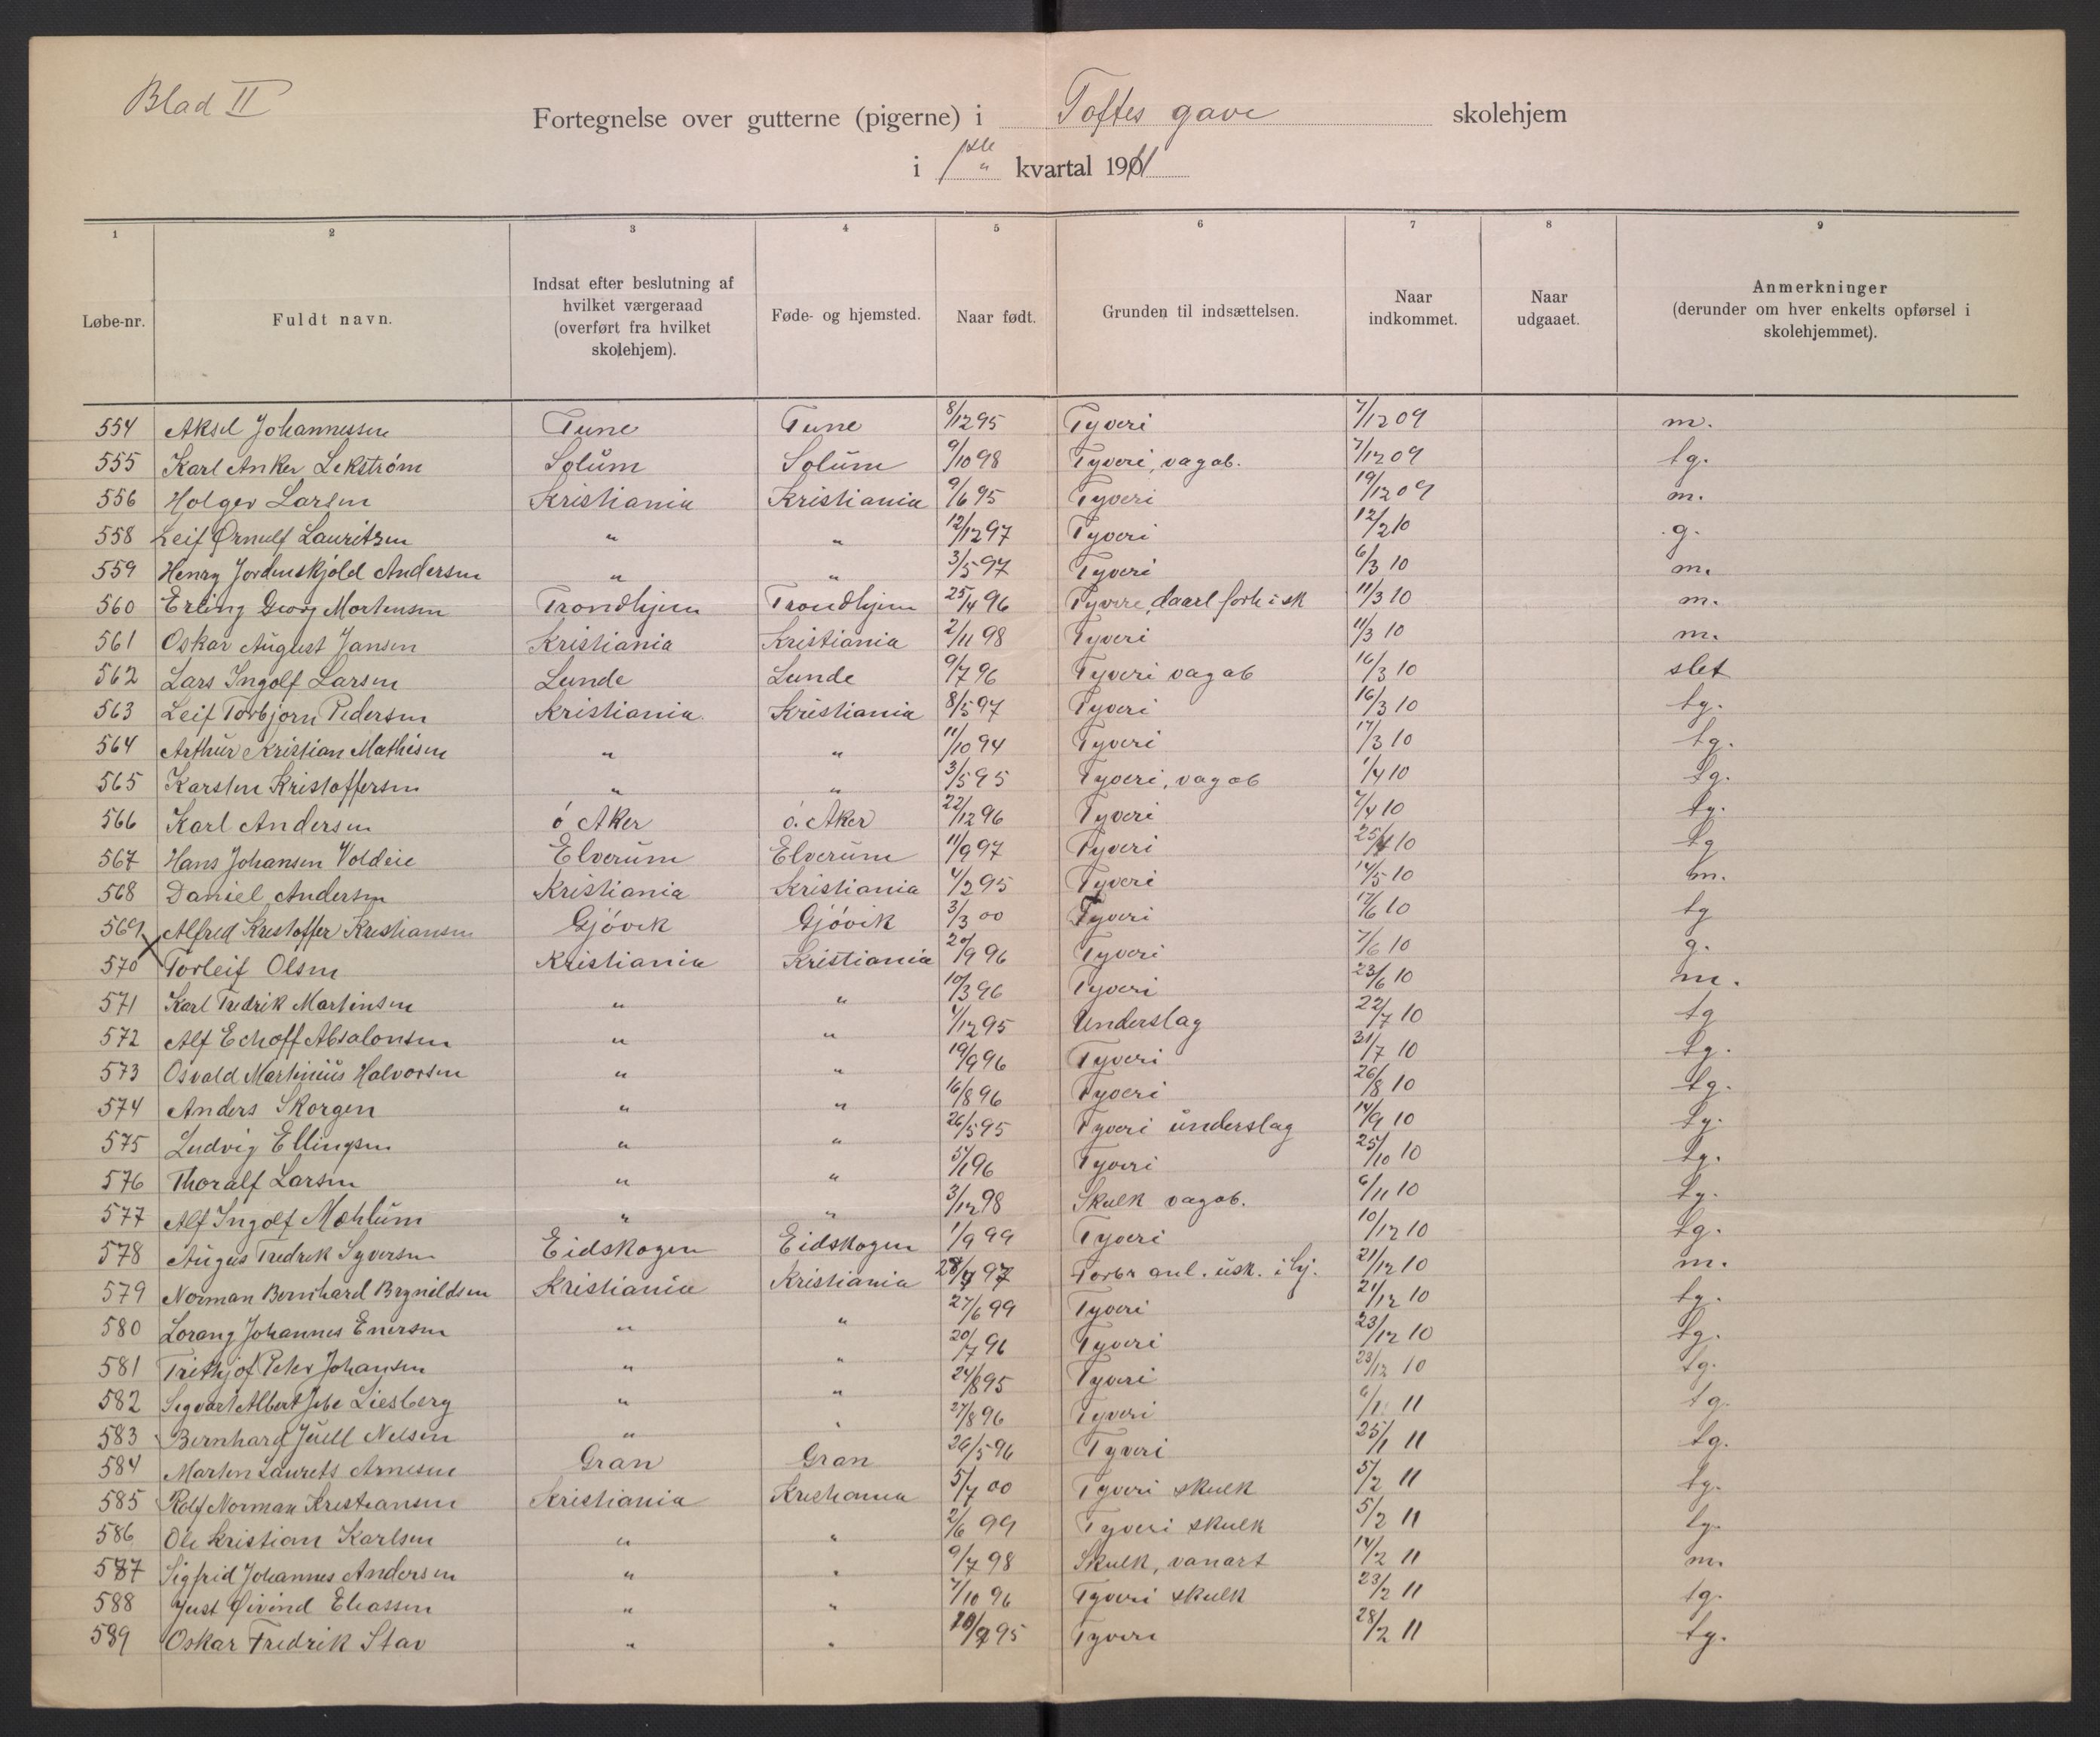 Blad II
Fortegnelse over gutterne (pigerne) i Toftes gave skolehjem
i 1ste " kvartal 1911
1 2 3 4 5 6 7 8 9
Løbe-nr. Fuldt navn. Indsat efter beslutning af hvilket værgeraad (overført fra hvilket skolehjem). Føde- og hjemsted. Naar født. Grunden til indsættelsen. Naar indkommet. Naar udgaaet. Anmerkninger (derunder om hver enkelts opførsel i skolehjemmet).
554 Aksel Johannessen Tune Tune 8/12 95 Tyveri 7/12 09 m.
555 Karl Anker Lekström Solum Solum 9/10 98 Tyveri, vagab. 7/12 09 tg.
556 Holger Larsen Kristiania Kristiania 9/6 95 Tyveri 19/12 09 m.
558 Leif Ørnulf Lauritzen " " 12/12 97 Tyveri 12/2 10 g.
559 Henry Jordenskjöld Andersen " " 3/5 97 Tyveri 6/3 10 m.
560 Erling Georg Mortensen Trondhjem Trondhjem 25/4 96 Tyvere, daarl forh i sk 11/3 10 m.
561 Oskar August Jansen Kristiania Kristiania 2/11 98 Tyveri 11/3 10 m.
562 Lars Ingolf Larsen Lunde Lunde 9/7 96 Tyveri vagab 16/3 10 slet
563 Leif Torbjørn Pedersen Kristiania Kristiania 8/5 97 Tyveri 16/3 10 tg.
564 Arthur Kristian Mathisen " " 11/10 94 Tyveri 17/3 10 tg.
565 Karsten Kristoffersen " " 3/5 95 Tyveri, vagab 1/4 10 tg.
566 Karl Andersen ö Aker ö. Aker 22/12 96 Tyveri 7/4 10 tg.
567 Hans Johansen Voldeie Elverum Elverum 11/9 97 Tyveri 25/4 10 tg
568 Daniel Andersen Kristiania Kristiania 4/2 95 Tyveri 14/5 10 m.
569 Alfred Kristoffer Kristiansen Gjövik Gjövik 3/3 00 Tyveri 17/6 10 tg
570 Torleif Olsen Kristiania Kristiania 20/9 96 Tyveri 7/6 10 g.
571 Karl Fredrik Martinsen " " 10/3 96 Tyveri 23/6 10 m.
572 Alf Echoff Absalonsen " " 4/12 95 Underslag 22/7 10 tg
573 Osvald Martinius Halvorsen " " 19/9 96 Tyveri 31/7 10 tg.
574 Anders Skorgen " " 16/8 96 Tyveri 26/8 10 tg.
575 Ludvig Ellingsen " " 26/5 95 Tyveri underslag 14/9 10 tg.
576 Thoralf Larsen " " 5/1 96 Tyveri 25/10 10 tg.
577 Alf Ingolf Mæhlum " " 3/12 98 Skulk vagab. 6/11 10 tg.
578 Augus Fredrik Syversen Eidskogen Eidskogen 1/9 99 Tyveri 10/12 10 tg.
579 Norman Bernhard Brynildsen Kristiania Kristiania 28/7 97 Forbr anl. usk. i hj. 21/12 10 m.
580 Lorang Johannes Enersen " " 27/6 99 Tyveri 21/12 10 tg.
581 Frithjof Peter Johansen " " 20/7 96 Tyveri 23/12 10 tg.
582 Sigvart Albert Liesberg " " 24/8 95 Tyveri 23/12 10 tg.
583 Bernhard Juell Nelsen " " 27/8 96 Tyveri 6/1 11 tg.
584 Marten Laurets Arnesen Gran Gran 26/5 96 Tyveri 25/1 11 tg.
585 Rolf Norman Kristiansen Kristiania Kristiania 5/7 00 Tyveri skulk 5/2 11 tg.
586 Ole Kristian Karlsen " " 2/6 99 Tyveri skulk 5/2 11 tg.
587 Sigfrid Johannes Andersen " " 9/7 98 Skulk, vanart 14/2 11 m.
588 Just Øivind Eliassen " " 7/10 96 Tyveri skulk 23/2 11 tg.
589 Oskar Fredrik Stav " " 95 Tyveri 28/2 11 tg.